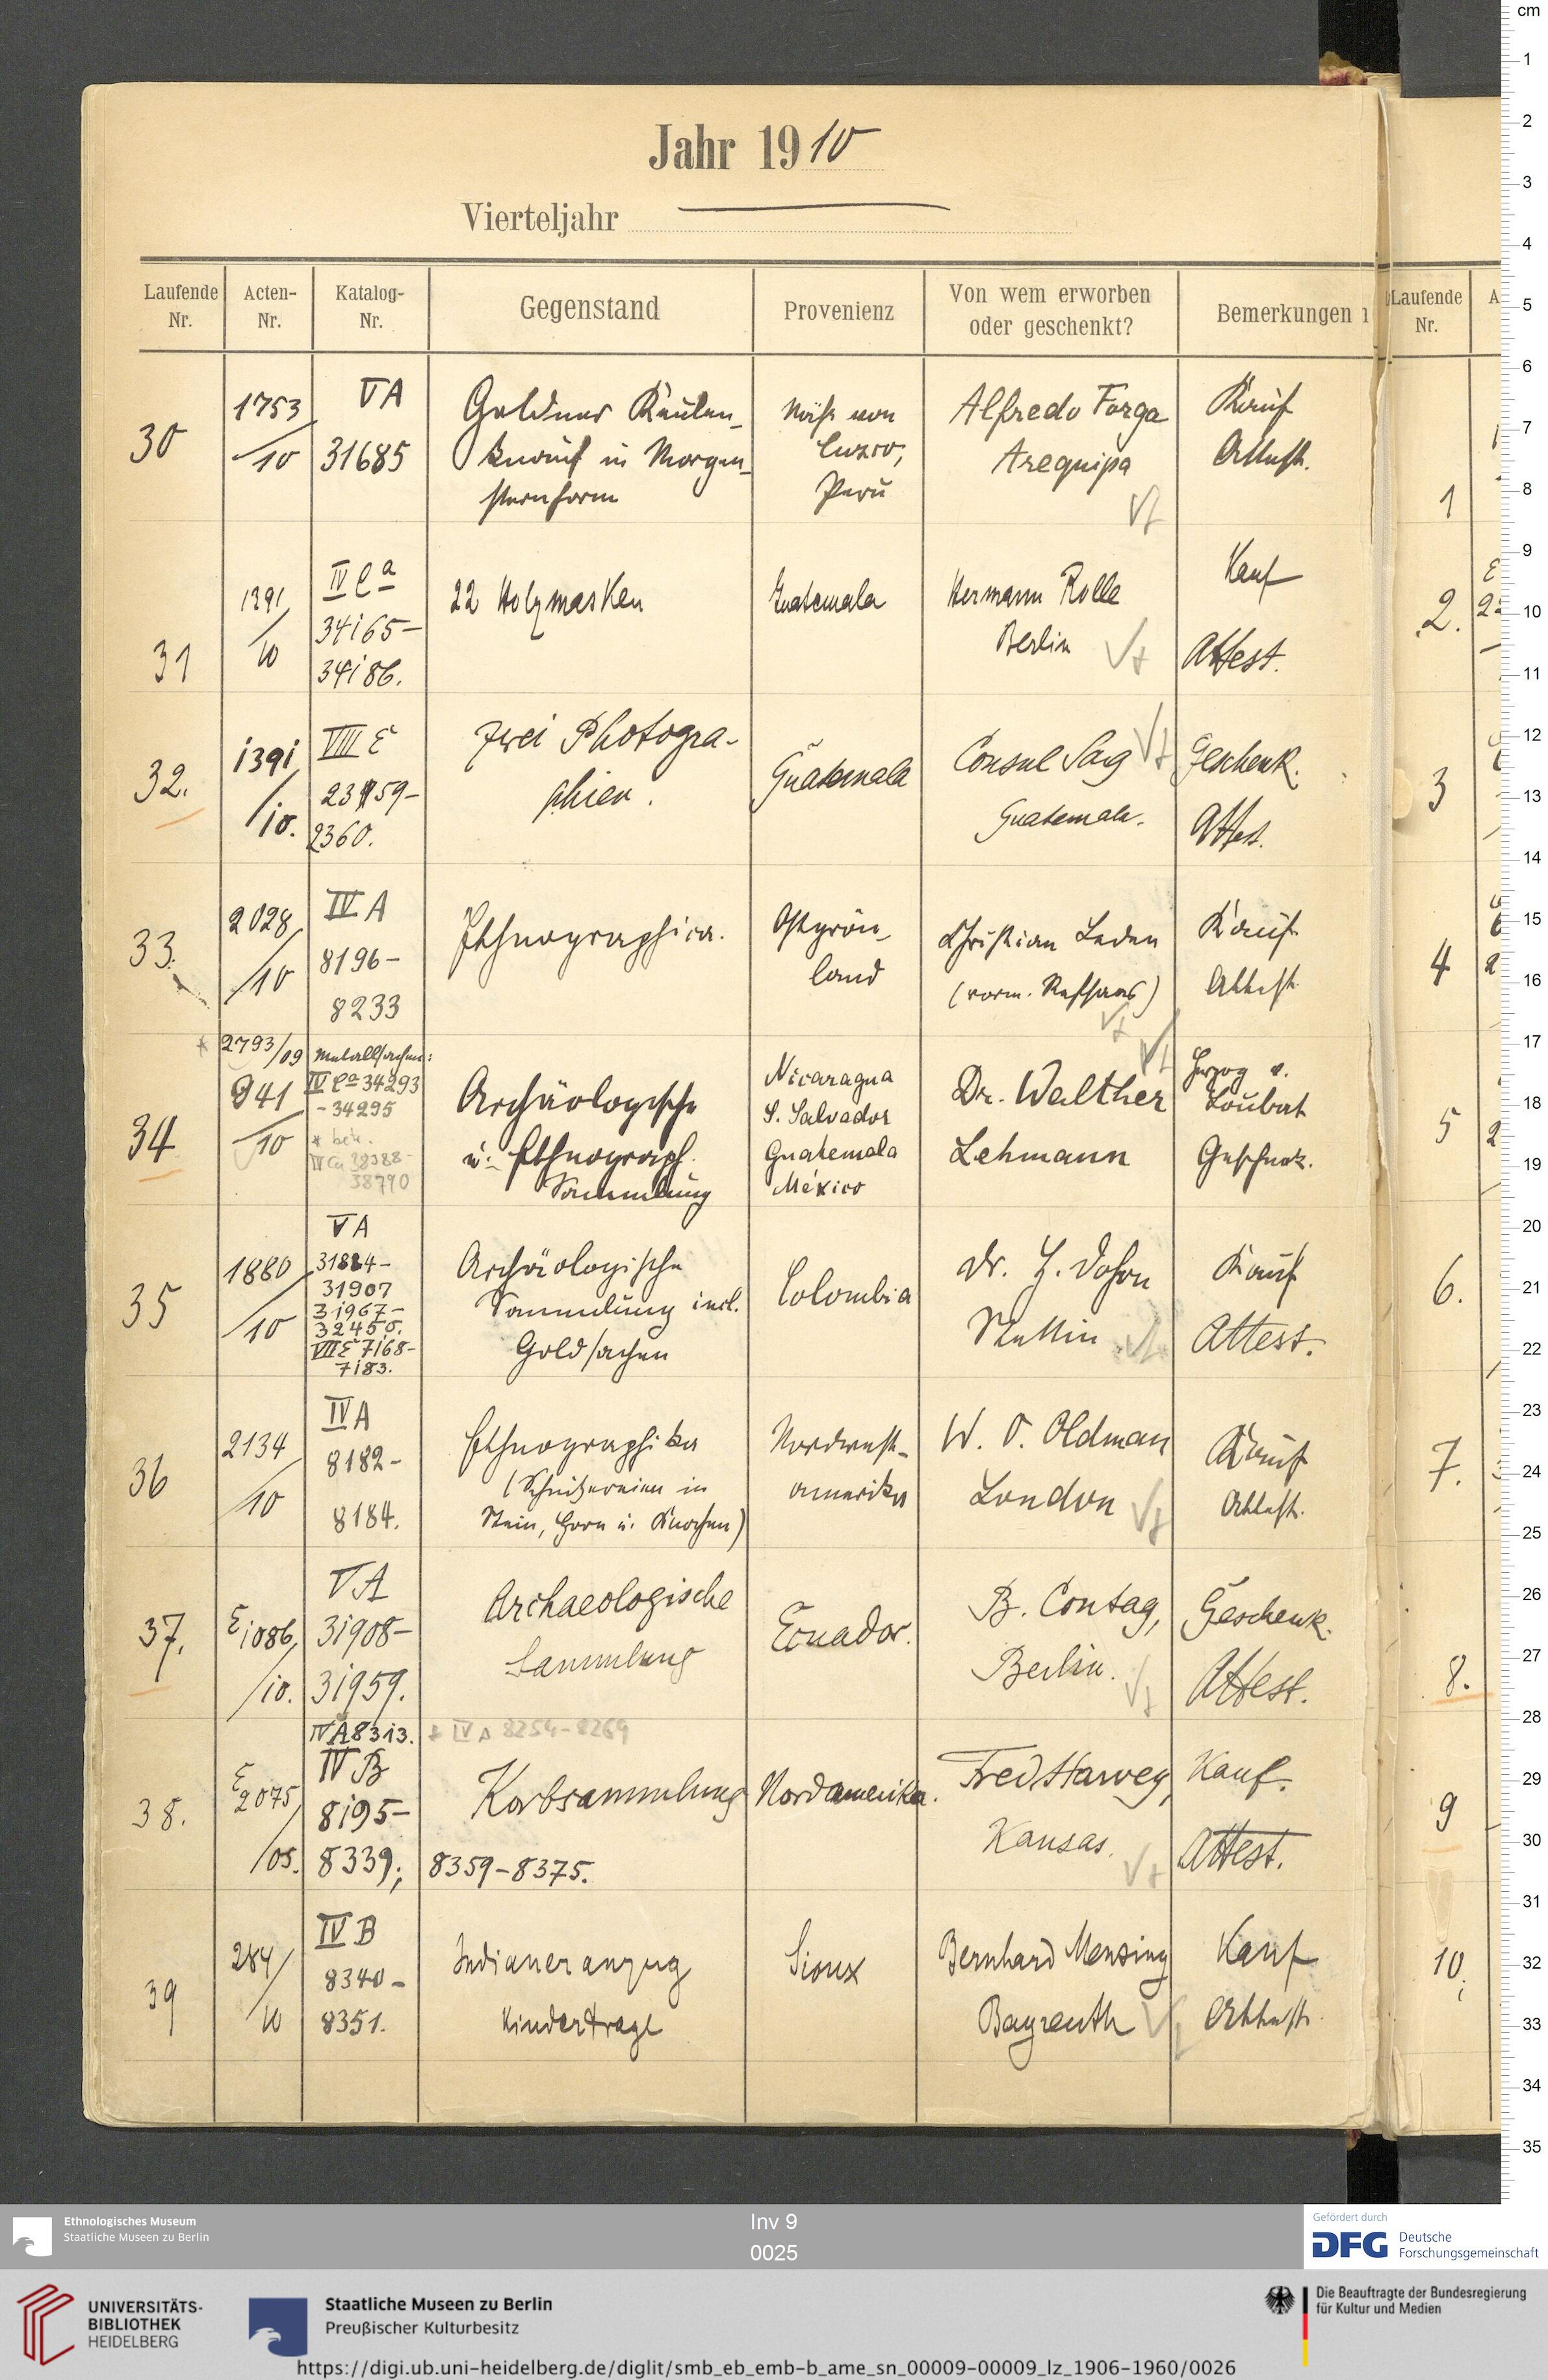 Jahr 1910
Vierteljahr
Laufende Nr.
Acten-Nr.
Katalog-Nr.
Gegenstand
Provenienz
Von wem erworben oder geschenkt?
Bemerkungen
30
1753/10
V A
31685
Goldner Keulen-
knauf in Morgen-
sternform
Näh von
Cuzco,
Perú
Alfredo Forga
Arequipa
Kauf
Attest.
31
1391/10
IV Ca
34165-
34186.
22 Holzmasken
Guatemala
Hermann Rolle
Berlin
Kauf
Attest.
32.
1391/10.
VIII E
2359-
2360.
Zwei Photogra-
phien.
Guatemala
Consul Sarg
Guatemala.
Geschenk.
Attest.
33.
2028/10
IV A
8196-
8233
Ethnographica.
Ostgrön-
land
Christian Leden
Kauf
Attest.
34
2793/09
941/10
Metallsachen:
IV Ca 34293
-34295
Archäologische
u. Ethnograph.
Sammlung
Nicaragua
S. Salvador
Guatemala
México
Dr. Walther
Lehmann
Herzog v.
Loubat
Geschenk.
35
1880/10
V A
31884-
31907
31967-
32450.
VIII E 7168-
7183.
Archäologische
Sammlung incl.
Goldsachen
Colombia
Dr. H. Dohrn
Stettin
Kauf
Attest.
36
2134/10
IV A
8182-
8184.
Ethnographika
(Schnitzereien in
Stein, Horn u. Knochen)
Nordwest-
amerika
W. O. Oldman
London
Kauf
Attest.
37.
E 1086/10.
V A
31908-
31959.
Archaeologische
Sammlung
Ecuador.
B. Contag,
Berlin.
Geschenk.
Attest.
38.
E 2075/05.
IV A 8313.
* IV A 8254-8269
IV B
8195-
8339; 8359-8375.
Korbsammlung
Nordamerika.
Fred Harvey,
Kansas.
Kauf.
Attest.
39
284/10
IV B
8340-
8351.
Indianeranzug
Kindertrage
Sioux
Bernhard Mensing
Bayreuth
Kauf
Attest.
Laufende Nr.
A
1
2.
3
4
5
6.
7.
8.
9
10.
cm
1
2
3
4
5
6
7
8
9
10
11
12
13
14
15
16
17
18
19
20
21
22
23
24
25
26
27
28
29
30
31
32
33
34
35
Ethnologisches Museum
Staatliche Museen zu Berlin
Inv 9
0025
Gefördert durch
DFG Deutsche
Forschungsgemeinschaft
UNIVERSITÄTS-
BIBLIOTHEK
HEIDELBERG
Staatliche Museen zu Berlin
Preußischer Kulturbesitz
Die Beauftragte der Bundesregierung
für Kultur und Medien
https://digi.ub.uni-heidelberg.de/diglit/smb_eb_emb-b_ame_sn_00009-00009_lz_1906-1960/0026